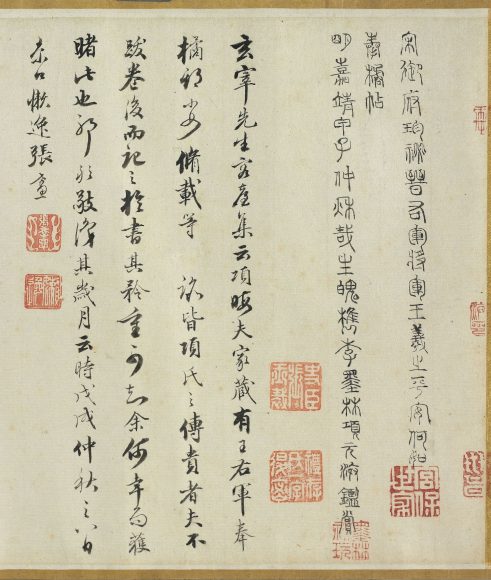 宋御府珍祕晉右軍將軍王羲之平安何如
奉橘帖
明嘉靖甲子仲秋哉生魄檇李墨林項元汴鑑賞
玄宰先生容臺集云項晦夫家藏有王右軍奉
橘 脩載等 皆項氏之傳貴者夫不
跋卷後而記之於書其矜重可知余何幸而獲
睹此也耶 敬識其歲月云時戊戌仲秋之八日
京口懶逸張